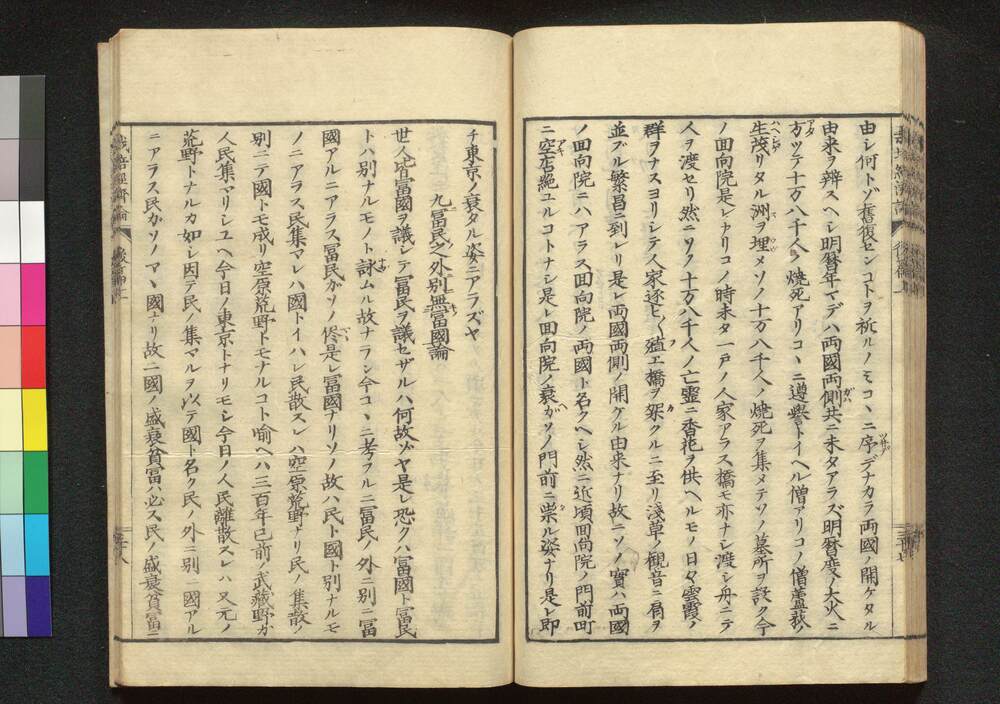 由シ何トゾ舊復センコトヲ祈ルノミコヽニ序デナカラ両國ノ開ケタル
由来ヲ辨スヘシ明暦年マデハ両國両側共ニ未タアラズ明暦度ノ大火ニ
方ツテ十万八千人ノ焼死アリコヽニ遵誉トイヘル僧アリコノ僧蘆荻ノ
生茂リタル洲ヲ埋メソノ十万八千人ノ焼死ヲ集メテソノ墓所ヲ設ク今
ノ回向院是レナリコノ時未タ一戸ノ人家アラス橋モ亦ナシ渡シ舟ニテ
人ヲ渡セリ然ニソノ十万八千人ノ亡霊ニ香花ヲ供ヘルモノ日々雲霞ノ
群ヲナスヨリシテ人家逐ヒ〱殖エ橋ヲ架クルニ至リ淺草ノ観音ニ肩ヲ
並ブル繁昌ニ到レリ是レ両國両側ノ開ケル由来ナリ故ニソノ實ハ両國
ノ回向院ニハアラス回向院ノ両國ト名クヘシ然ニ近頃回向院ノ門前町
ニ空店絶ユルコトナシ是レ回向院ノ衰ガソノ門前ニ祟ル姿ナリ是レ即
チ東京ノ衰タル姿ニアラズヤ
九 冨民之外別無冨國論
世ノ人皆冨國ヲ議シテ冨民ヲ議セザルハ何故ゾヤ是レ恐クハ冨國ト冨民
トハ別ナルモノト詠ムル故ナラン今コヽニ考フルニ冨民ノ外ニ別ニ冨
國アルニアラス冨民ガソノ侭是レ冨国ナリソノ故ハ民ト國ト別ナルモ
ノニアラス民集マレハ國トイハレ民散スレハ空原荒野トナリ民ノ集散ノ
別ニテ國トモ成リ空原荒野トモナルコト喩ヘハ三百年已前ノ武藏野ガ
人民集マリシユヘ今日ノ東京トナリモシ今日ノ人民離散スレハ又元ノ
荒野トナルカ如シ因テ民ノ集マルヲ以テ國ト名ク民ノ外ニ別ニ國アル
ニアラス民カソノマヽ國ナリ故ニ國ノ盛衰貧冨ハ必ス民ノ盛衰貧冨ニ